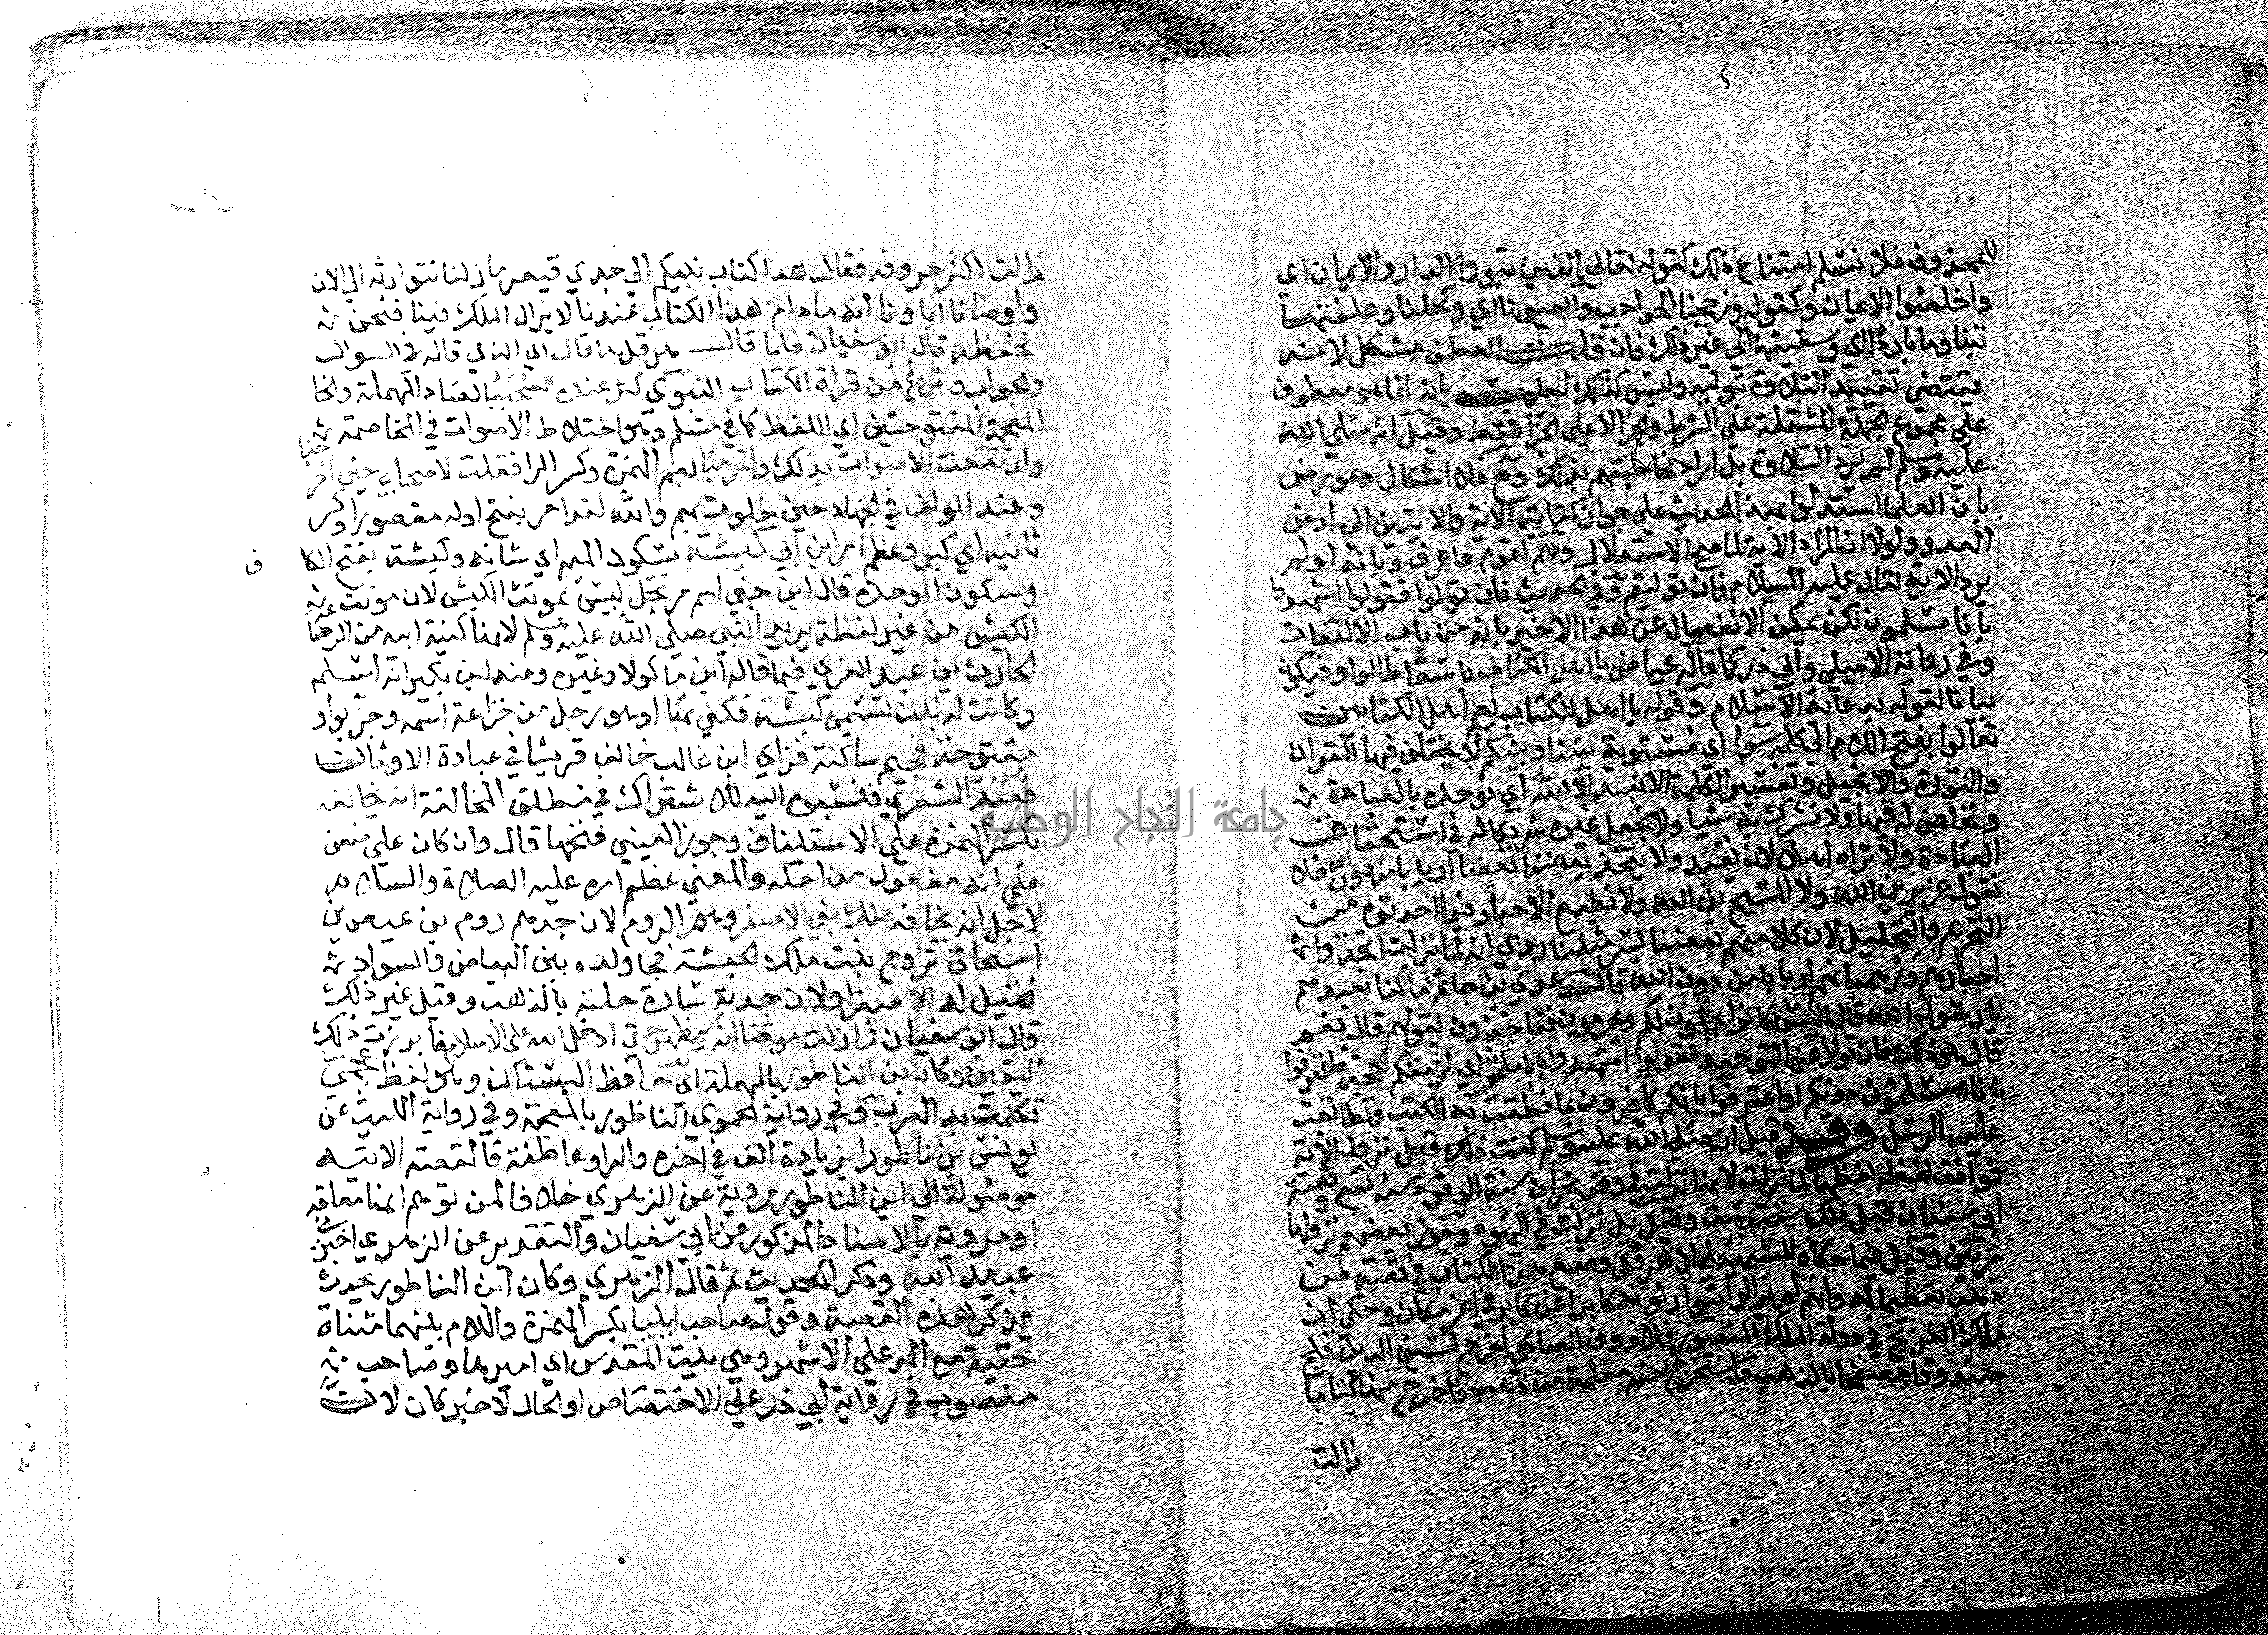 للمحذوف فلا نسلم امتناع ذلك كقوله تعالي والذين تبووا الدار والايمان اي
واخلصوا الايمان وكقوله وزججنا الحواجب والعيونا اي وكحلنا وعلفتها
تبنا وما باردا اي وسقيتها الي غير ذلك فان قلت العطف مشكل لانه
يقتضي تقييد التلاوة بتوليهم وليس كذلك اجيب بانه انما هو معطوف
علي مجموع الجملة المشتملة علي الشرط والجزا لا علي الجزا فقط وقيل انه صلي الله
عليه وسلم لم يرد التلاوة بل اراد مخاطبتهم بذلك وح فلا اشكال وعورض
بان العلما استدلوا بهذا الحديث علي جواز كتابة الاية والايتين الي ارض
العدو ولولا ان المراد الاية لما صح الاستدلال وهم اقوم واعرف وبانه لو لم
يرد الاية لقال عليه السلام فان توليتم وفي الحديث فان تولوا فقولوا اشهدوا
بانا مسلمون لكن يمكن الانفصال عن هذا الاخير بانه من باب الالتفات
وفي رواية الاصيلي وابي ذر كما قاله عياض يا اهل الكتاب باسقاط الواو فيكون
بيانا لقوله بدعاية الاسلام وقوله يا اهل الكتاب يعم اهل الكتابين
تعالوا بفتح اللام الي كلمة سوا اي مستوية بيننا وبينكم لا يختلف فيها القران
والتوراة والانجيل وتفسير الكلمة الا نعبد الا الله اي نوحده بالعبادة
ونخلص له فيها ولا نشرك به شيا ولا نجعل غيره شريكا له في استحقاق
العبادة ولا نراه اهلا لان يعبد ولا يتخذ بعضنا بعضا اربابا من دون الله فلا
نقول عزير بن الله ولا المسيح بن الله ولا نطيع الاحبار فيما احدثوه من
التحريم والتحليل لان كلا منهم بعضنا بشر مثلنا روي انه لما نزلت اتخذوا
احبارهم ورهبانهم اربابا من دون الله قال عدي بن حاتم ما كنا نعبدهم
يا رسول الله قال اليس كانوا يحلون لكم ويحرمون فتاخذون بقولهم قال نعم
قال هو ذاك فان تولوا عن التوحيد فقولوا اشهدوا بانا مسلمون اي لزمتكم الحجة فاعترفوا
بانا مسلمون دونكم او اعترفوا بانكم كافرون بما نطقت به الكتب وتطابقت
عليه الرسل وقد قيل انه صلي الله عليه وسلم كتب ذلك قبل نزول الاية
فوافق لفظه لفظها لما نزلت لانها نزلت في وفد نجران سنة الوفود سنة تسع وقصة
ابي سفيان قبل ذلك سنة ست وقيل بل نزلت في اليهود وجوز بعضهم نزولها
مرتين وقيل فيما حكاه السهيلي ان هرقل وضع هذا الكتاب في قصبة من
ذهب تعظيما له وانهم لم يزالوا يتوارثونه كابرا عن كابر في اعز مكان وحكي ان
ملك الفرنج في دولة الملك المنصور قلاوون الصالحي اخرج لسيف الدين قلج
صندوقا مصفحا بالذهب واستخرج منه مقلمة من ذهب فاخرج منها كتابا
زالت
زالت اكثر حروفه فقال هذا كتاب نبيكم الي جدي قيصر ما زلنا نتوارثه الي الان
واوصانا اباونا انه ما دام هذا الكتاب عندنا لا يزال الملك فينا فنحن
نحفظه قال ابو سفيان فلما قال هرقل ما قال اي الذي قاله في السوال
والجواب وفرغ من قراة الكتاب النبوي كثر عنده الصخب بالصاد المهملة والخا
المعجمة المفتوحتين اي اللغط كما في مسلم وهو اختلاط الاصوات في المخاصمة
وارتفعت الاصوات بذلك واخرجنا بضم الهمزة وكسر الرا فقلت لاصحابي حين اخرجنا
وعند المولف في الجهاد حين خلوت بهم والله لقد امر بفتح اوله مقصورا وكسر
ثانيه اي كبر وعظم امر ابن ابي كبشة بسكون الميم اي شانه وكبشة بفتح الكاف
وسكون الموحدة قال ابن جني اسم مرتجل ليس بمونث الكبش لان مونث
الكبش من غير لفظه يريد النبي صلي الله عليه وسلم لانها كنية ابيه من الرضاعة
الحارث بن عبد العزي فيما قاله ابن ماكولا وغيره وعند ابن بكير انه اسلم
وكانت له بنت تسمي كبشة فكني بها او هو رجل من خزاعة اسمه وجز بواو
مفتوحة فجيم ساكنة فزاي ابن غالب خالف قريشا في عبادة الاوثان
فعبد الشعري فنسبوه اليه للاشتراك في مطلق المخالفة انه يخافه
بكسر الهمزة علي الاستيناف وجوز العيني فتحها قال وان كان علي ضعف
علي انه مفعول من اجله والمعني عظم امره عليه الصلاة والسلام
لاجل انه يخافه ملك بني الاصفر وهم الروم لان جدهم روم بن عيص بن
اسحاق تزوج بنت ملك الحبشة فجا ولده بين البياض والسواد
فقيل له الاصفر او لان جدته سارة حلته بالذهب وقيل غير ذلك
قال ابو سفيان فما زلت موقنا انه سيظهر حتي ادخل الله علي الاسلام فابرزت ذلك
اليقين وكان ابن الناطور بالمهملة اي حافظ البستان وهو لفظ عجمي
تكلمت به العرب وفي رواية الحموي الناظور بالمعجمة وفي رواية الليث عن
يونس بن ناطورا بزيادة الف في اخره والواو عاطفة فالقصة الاتية
موصولة الي ابن الناطور مروية عن الزهري خلافا لمن توهم انها معلقة
او مروية بالاسناد المذكور عن ابي سفيان والتقدير عن الزهري اخبرني
عبيد الله وذكر الحديث ثم قال الزهري وكان ابن الناطور يحدث
فذكر هذه القصة وقوله صاحب ايليا بكسر الهمزة واللام بينهما مثناة
تحتية مع المد علي الاشهر وهي بيت المقدس اي اميرها وصاحب
منصوب في رواية ابي ذر علي الاختصاص او الحال لا خبر كان لان
جامعة النجاح الوطنية